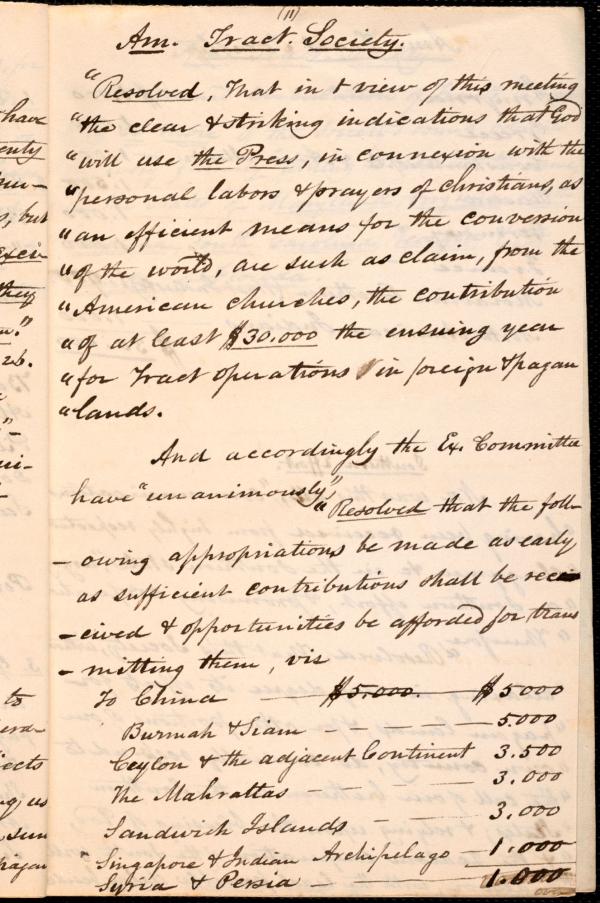 (11)
Am. Tract. Society.
"Resolved, That in & view of this meeting
"the clear & striking indications that God
"will use the Press, in connexion with the
"personal labors & prayers of christians, as
"an efficient means for the conversion
"of the world, are such as claim, from the
"American churches, the contribution
"of at least $30.000 the ensuing year
"for Tract operations in foreign & pagan
"lands.
And accordingly the Ex. Committee
have "unanimously",
"Resolved that the foll-
- owing appropriations be made as early
as sufficient contributions shall be recei
- ceived & opportunities be afforded for trans
- mitting them, vis
To China $5.000. $5000
Burmah & Siam - - - - 5.000
Ceylon & the adjacent Continent 3.500
The Mahrattas - - - - 3.000
Sandwich Islands - - 3.000
"Singapore & Indian Archipelago - 1.000
Syria & Persia - - - 1.000
have
enty
s, but
they
26.
to
jects
us
sun